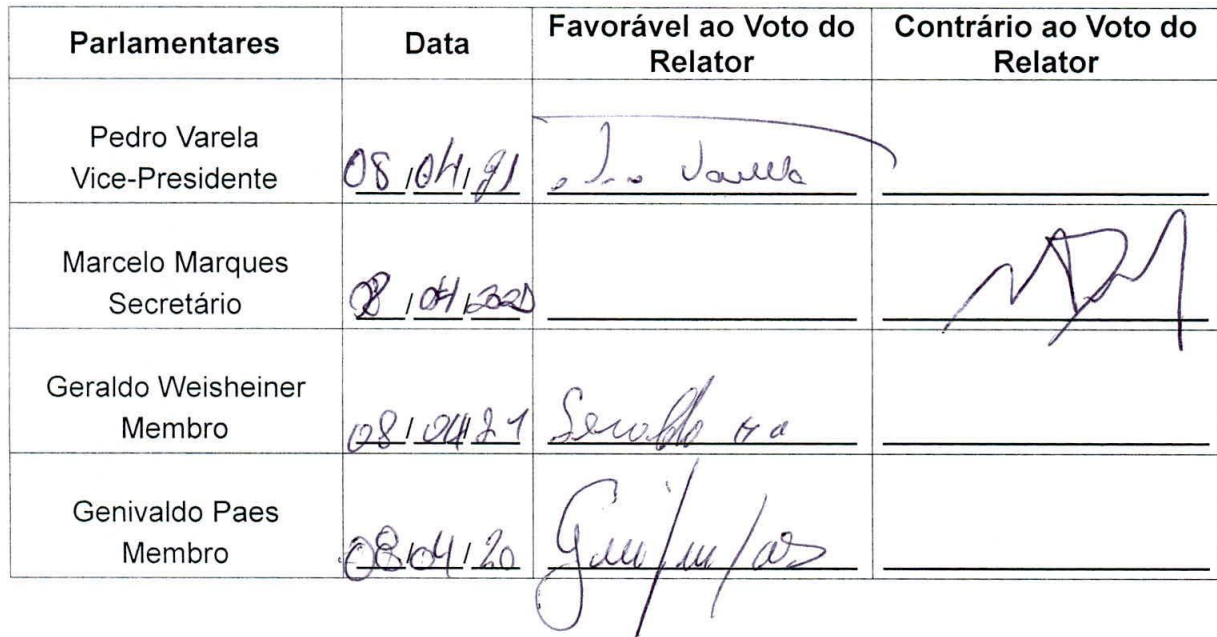 Parlamentares Data Favorável ao Voto do Relator Contrário ao Voto do Relator
Pedro Varela
Vice-Presidente 08/04/21 Varela
Marcelo Marques
Secretário 08/04/
Geraldo Weisheiner
Membro 08/04/21 Geraldo
Genivaldo Paes
Membro 08/04/20